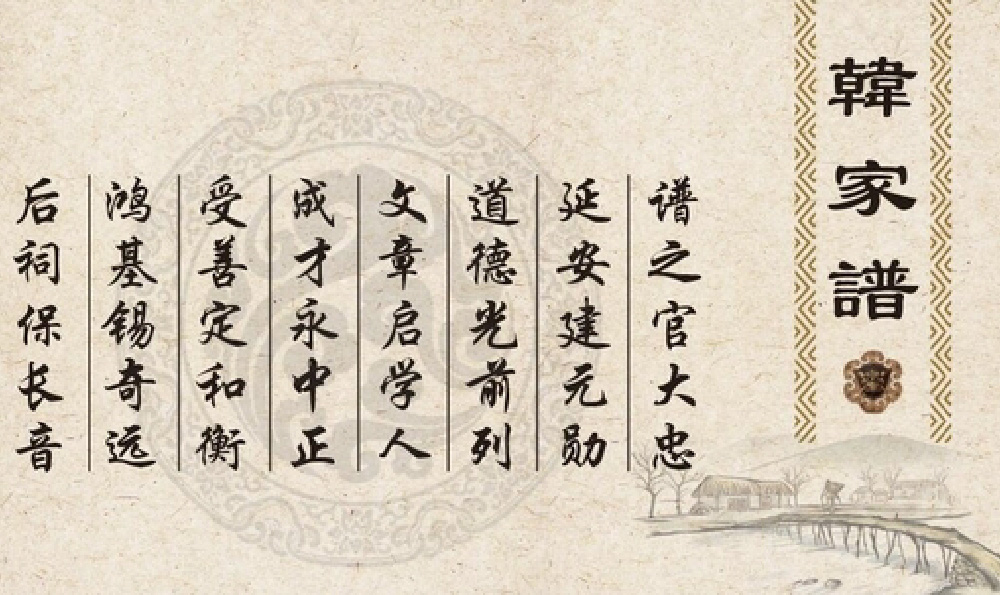 韓家譜
谱之官大忠
延安建元勋
道德光前列
文章启学人
成才永中正
受善定和衡
鸿基锡奇远
后祠保长音